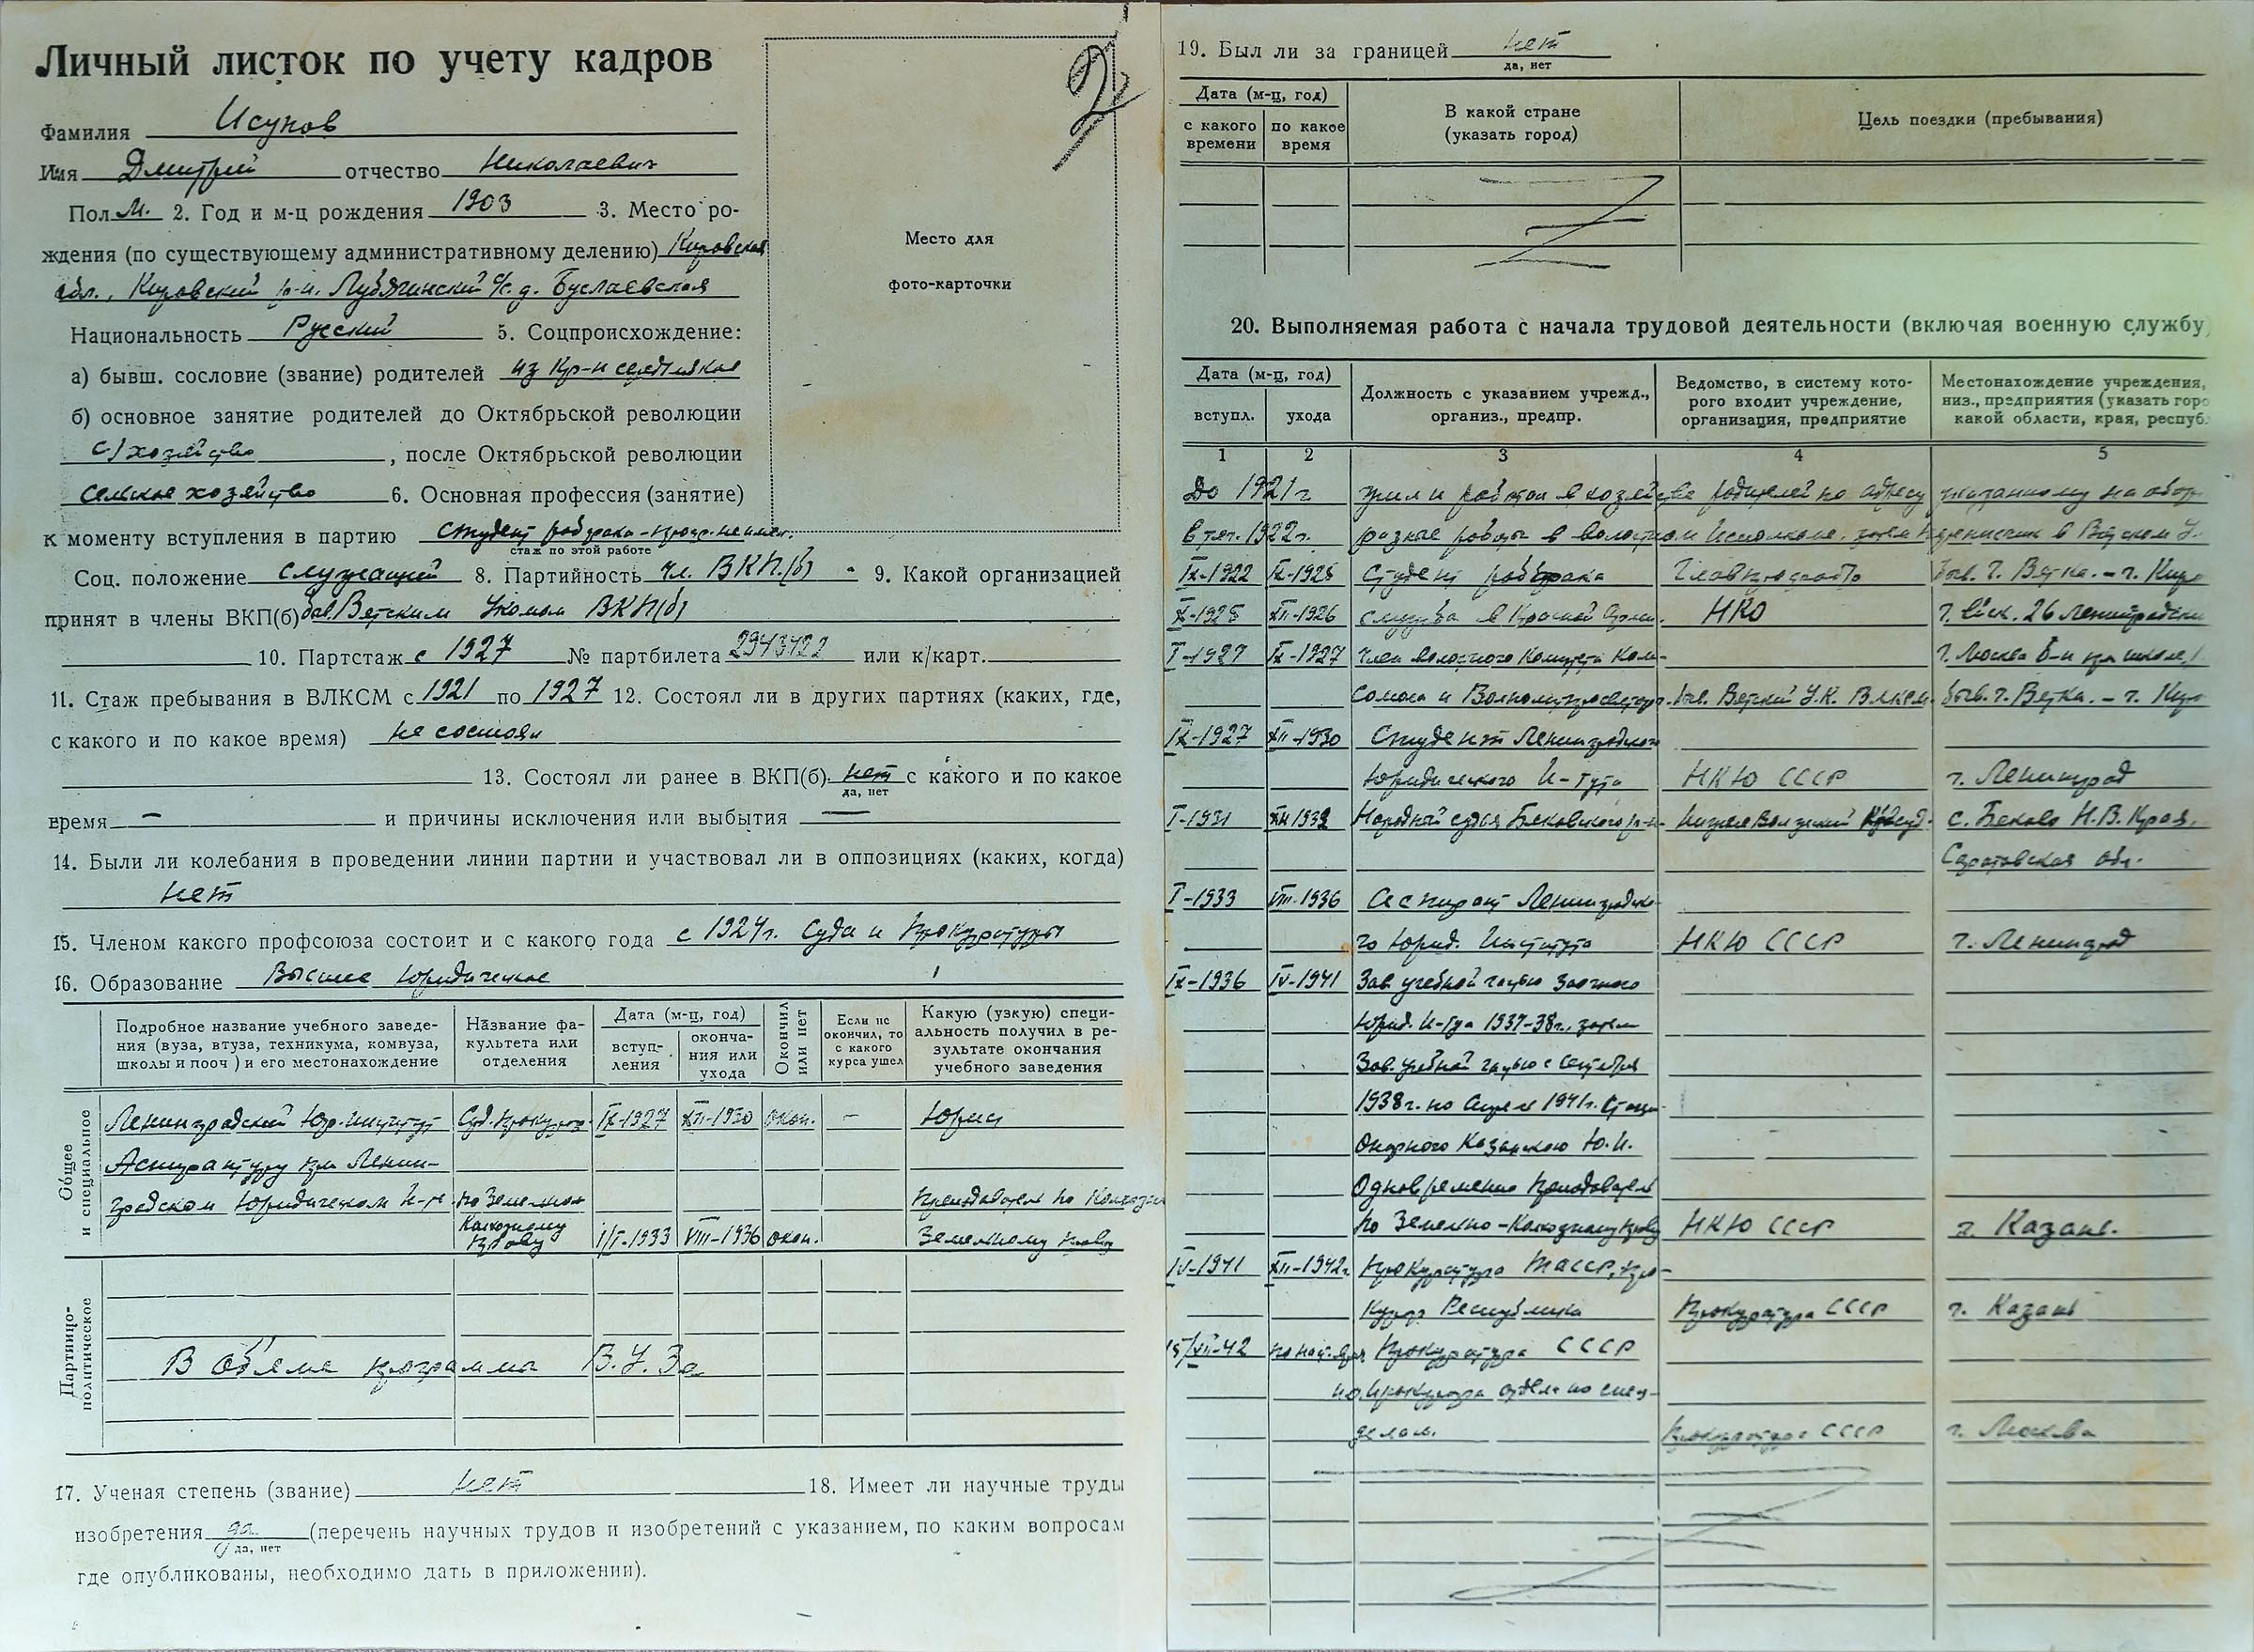 Личный листок по учету кадров
2
Фамилия Исупов
Имя Дмитрий отчество Николаевич
Пол м. 2. Год и м-ц рождения 1903 3. Место ро-
ждения (по существующему административному делению) Кировская
обл., Кировский р-н. Лубягинский с/с. д. Буслаевская
Национальность Русский 5. Соцпроисхождение:
а) бывш. сословие (звание) родителей из кр-н
б) основное занятие родителей до Октябрьской революции
с/хозяйство, после Октябрьской революции
сельское хозяйство 6. Основная профессия (занятие)
к моменту вступления в партию студент рабфака
стаж по этой работе
Соц. положение служащий 8. Партийность чл. ВКП(б) 9. Какой организацией
принят в члены ВКП(б) быв. Вятским Укомом ВКП(б)
10. Партстаж с 1927 № партбилета 2943122 или к/карт.
11. Стаж пребывания в ВЛКСМ с 1921 по 1927 12. Состоял ли в других партиях (каких, где,
с какого и по какое время) не состоял
13. Состоял ли ранее в ВКП(б) нет с какого и по какое
да, нет
время — и причины исключения или выбытия —
14. Были ли колебания в проведении линии партии и участвовал ли в оппозициях (каких, когда)
нет
15. Членом какого профсоюза состоит и с какого года с 1924г. Суда и Прокуратуры
16. Образование Высшее юридическое
Подробное название учебного заведе-
ния (вуза, втуза, техникума, комвуза,
школы и пооч ) и его местонахождение
Название фа-
культета или
отделения
Дата (м-ц, год)
вступ-
ления
оконча-
ния или
ухода
Окончил
или нет
Если не
окончил, то
с какого
курса ушел
Какую (узкую) специ-
альность получил в ре-
зультате окончания
учебного заведения
Общее
и специальное
Ленинградский Юр. институт Суд. прокурор. IX-1927 XII-1930 окон. — Юрист
Аспирантуру при Ленин-
градском Юридическом И-те по Земельно Преподаватель по
Колхозному
праву I/I-1933 VIII-1936 окон. Земельному праву
Партийно-
политическое
В объеме программы В.У.За
17. Ученая степень (звание) нет 18. Имеет ли научные труды
изобретения да (перечень научных трудов и изобретений с указанием, по каким вопросам
да, нет
где опубликованы, необходимо дать в приложении).
19. Был ли за границей нет
да, нет
Дата (м-ц, год)
с какого
времени
по какое
время
В какой стране
(указать город)
Цель поездки (пребывания)
20. Выполняемая работа с начала трудовой деятельности (включая военную службу)
Дата (м-ц, год)
вступл.
ухода
Должность с указанием учрежд.,
организ., предпр.
Ведомство, в систему кото-
рого входит учреждение,
организация, предприятие
Местонахождение учреждения,
низ., предприятия (указать горо
какой области, края, респуб.
1 2 3 4 5
До 1921г. жил и работал в хозяйстве родителей по адресу указанному на обор
1922г. разные работы в волостном Исполкоме, затем в Вятском У.
IX-1922 IX-1925 Студент рабфака Главпрофобр быв. г. Вятка. – г. Киро
X-1925 XII-1926 служба в Красной Армии. НКО 26 Ленинградск
I-1927 IX-1927 Член волостного Комитета Ком-
сомола и быв. Вятский У.К. ВЛКСМ. быв. г. Вятка. – г. Кир
IX-1927 XII-1930 Студент Ленинградского
Юридического И-тута НКЮ СССР г. Ленинград
I-1931 XII 1932 Народный судья Бековского р-н- Нижне Волжский Крайсуд. с. Беково Н.В. Края.
Саратовская обл.
I-1933 VIII-1936 Аспирант Ленинградско-
го Юрид. Института НКЮ СССР г. Ленинград
IX-1936 IV-1941 Зав. учебной частью Заочного
Юрид. И-та 1937-38г., затем
Зав. учебной частью с Сентября
1938г. по Апрель 1941г. Стаци-
онарного Казанского Ю.И.
Одновременно преподаватель
по Земельно-Колхозному праву НКЮ СССР г. Казань.
IV-1941 XII-1942г. Прокуратура ТАССР, про-
курор Республики Прокуратура СССР г. Казань
15/VII-42 по наст. вр. Прокуратура СССР
прокурора отдела по спец-
делам. Прокуратура СССР г. Москва